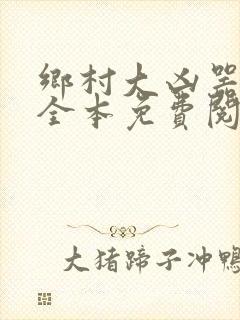 鄉村大凶
全本免費閱
大猪蹄子冲鴨